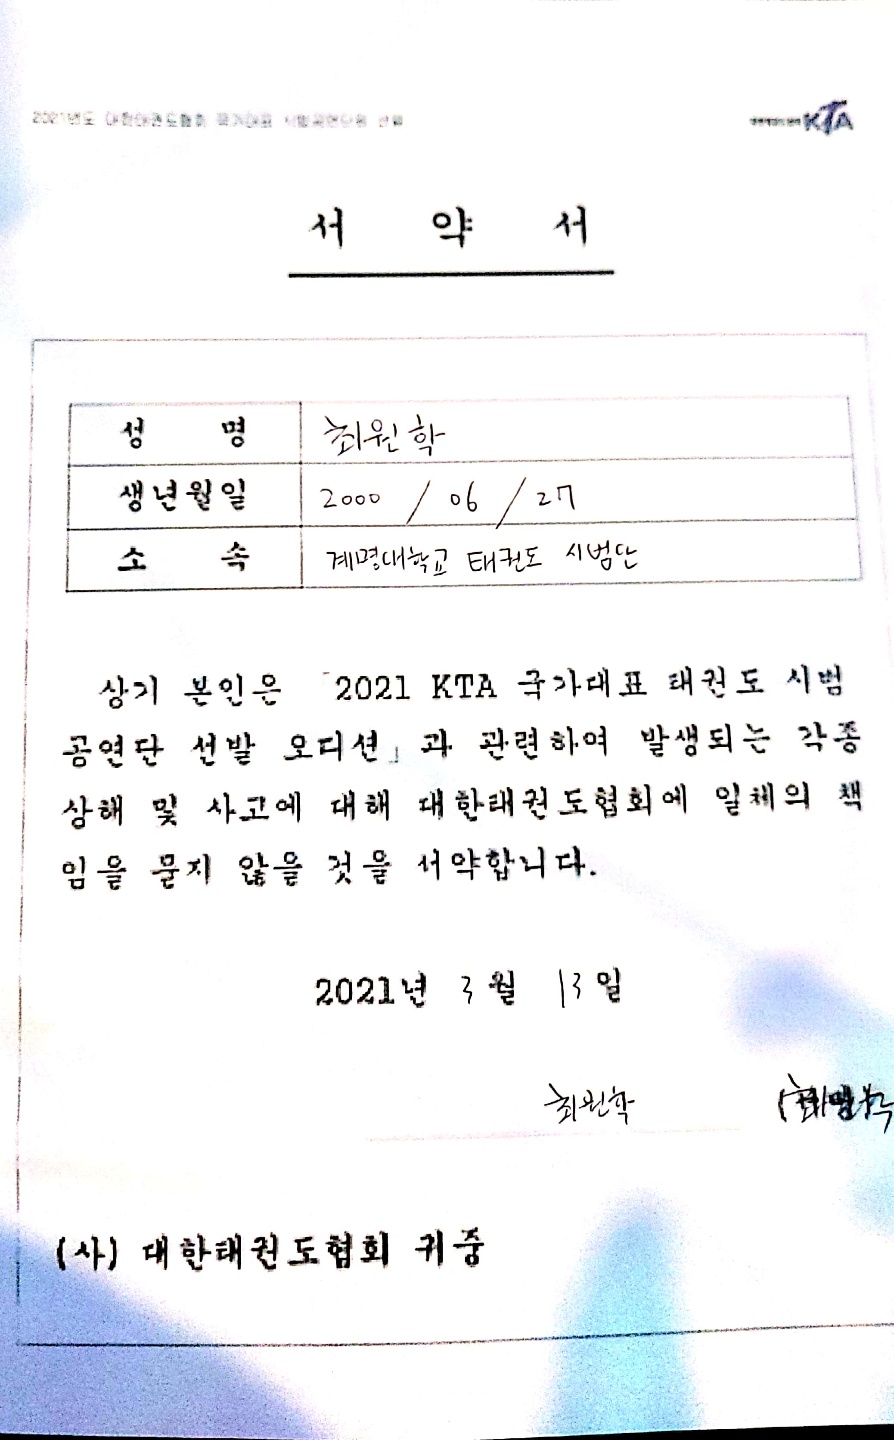 2021년도 대한태권도협회 국가대표 시범공연단원 선발
KTA
서 약 서
성 명 최원학
생년월일 2000 / 06 / 27
소 속 계명대학교 태권도 시범단
상기 본인은 「2021 KTA 국가대표 태권도 시범
공연단 선발 오디션」과 관련하여 발생되는 각종
상해 및 사고에 대해 대한태권도협회에 일체의 책
임을 묻지 않을 것을 서약합니다.
2021년 3월 13일
최원학
(사) 대한태권도협회 귀중